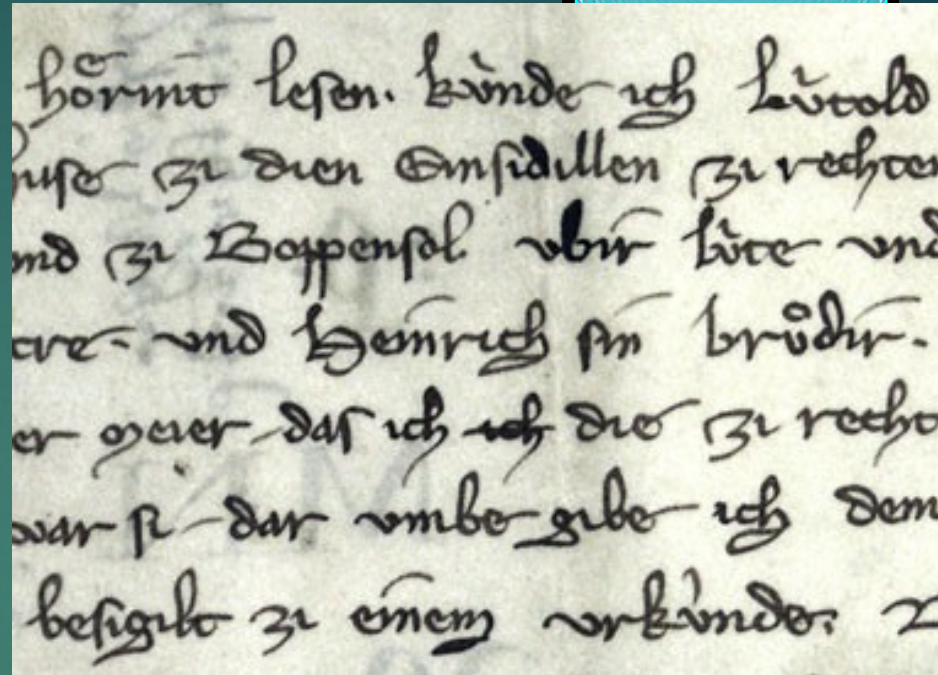 hoͤrint leſen. kv̀nde ich Lv̀told
huſe zi dien Einſidillen zi rechten
vnd zi Boppenſol vbir lv̀te vnd
vnd Heinrich ſin brvͦdir.
er meier das ich ich die zi recht
war ſi dar vmbe gibe ich dem
beſigilt zi einem vrkv̀nde.